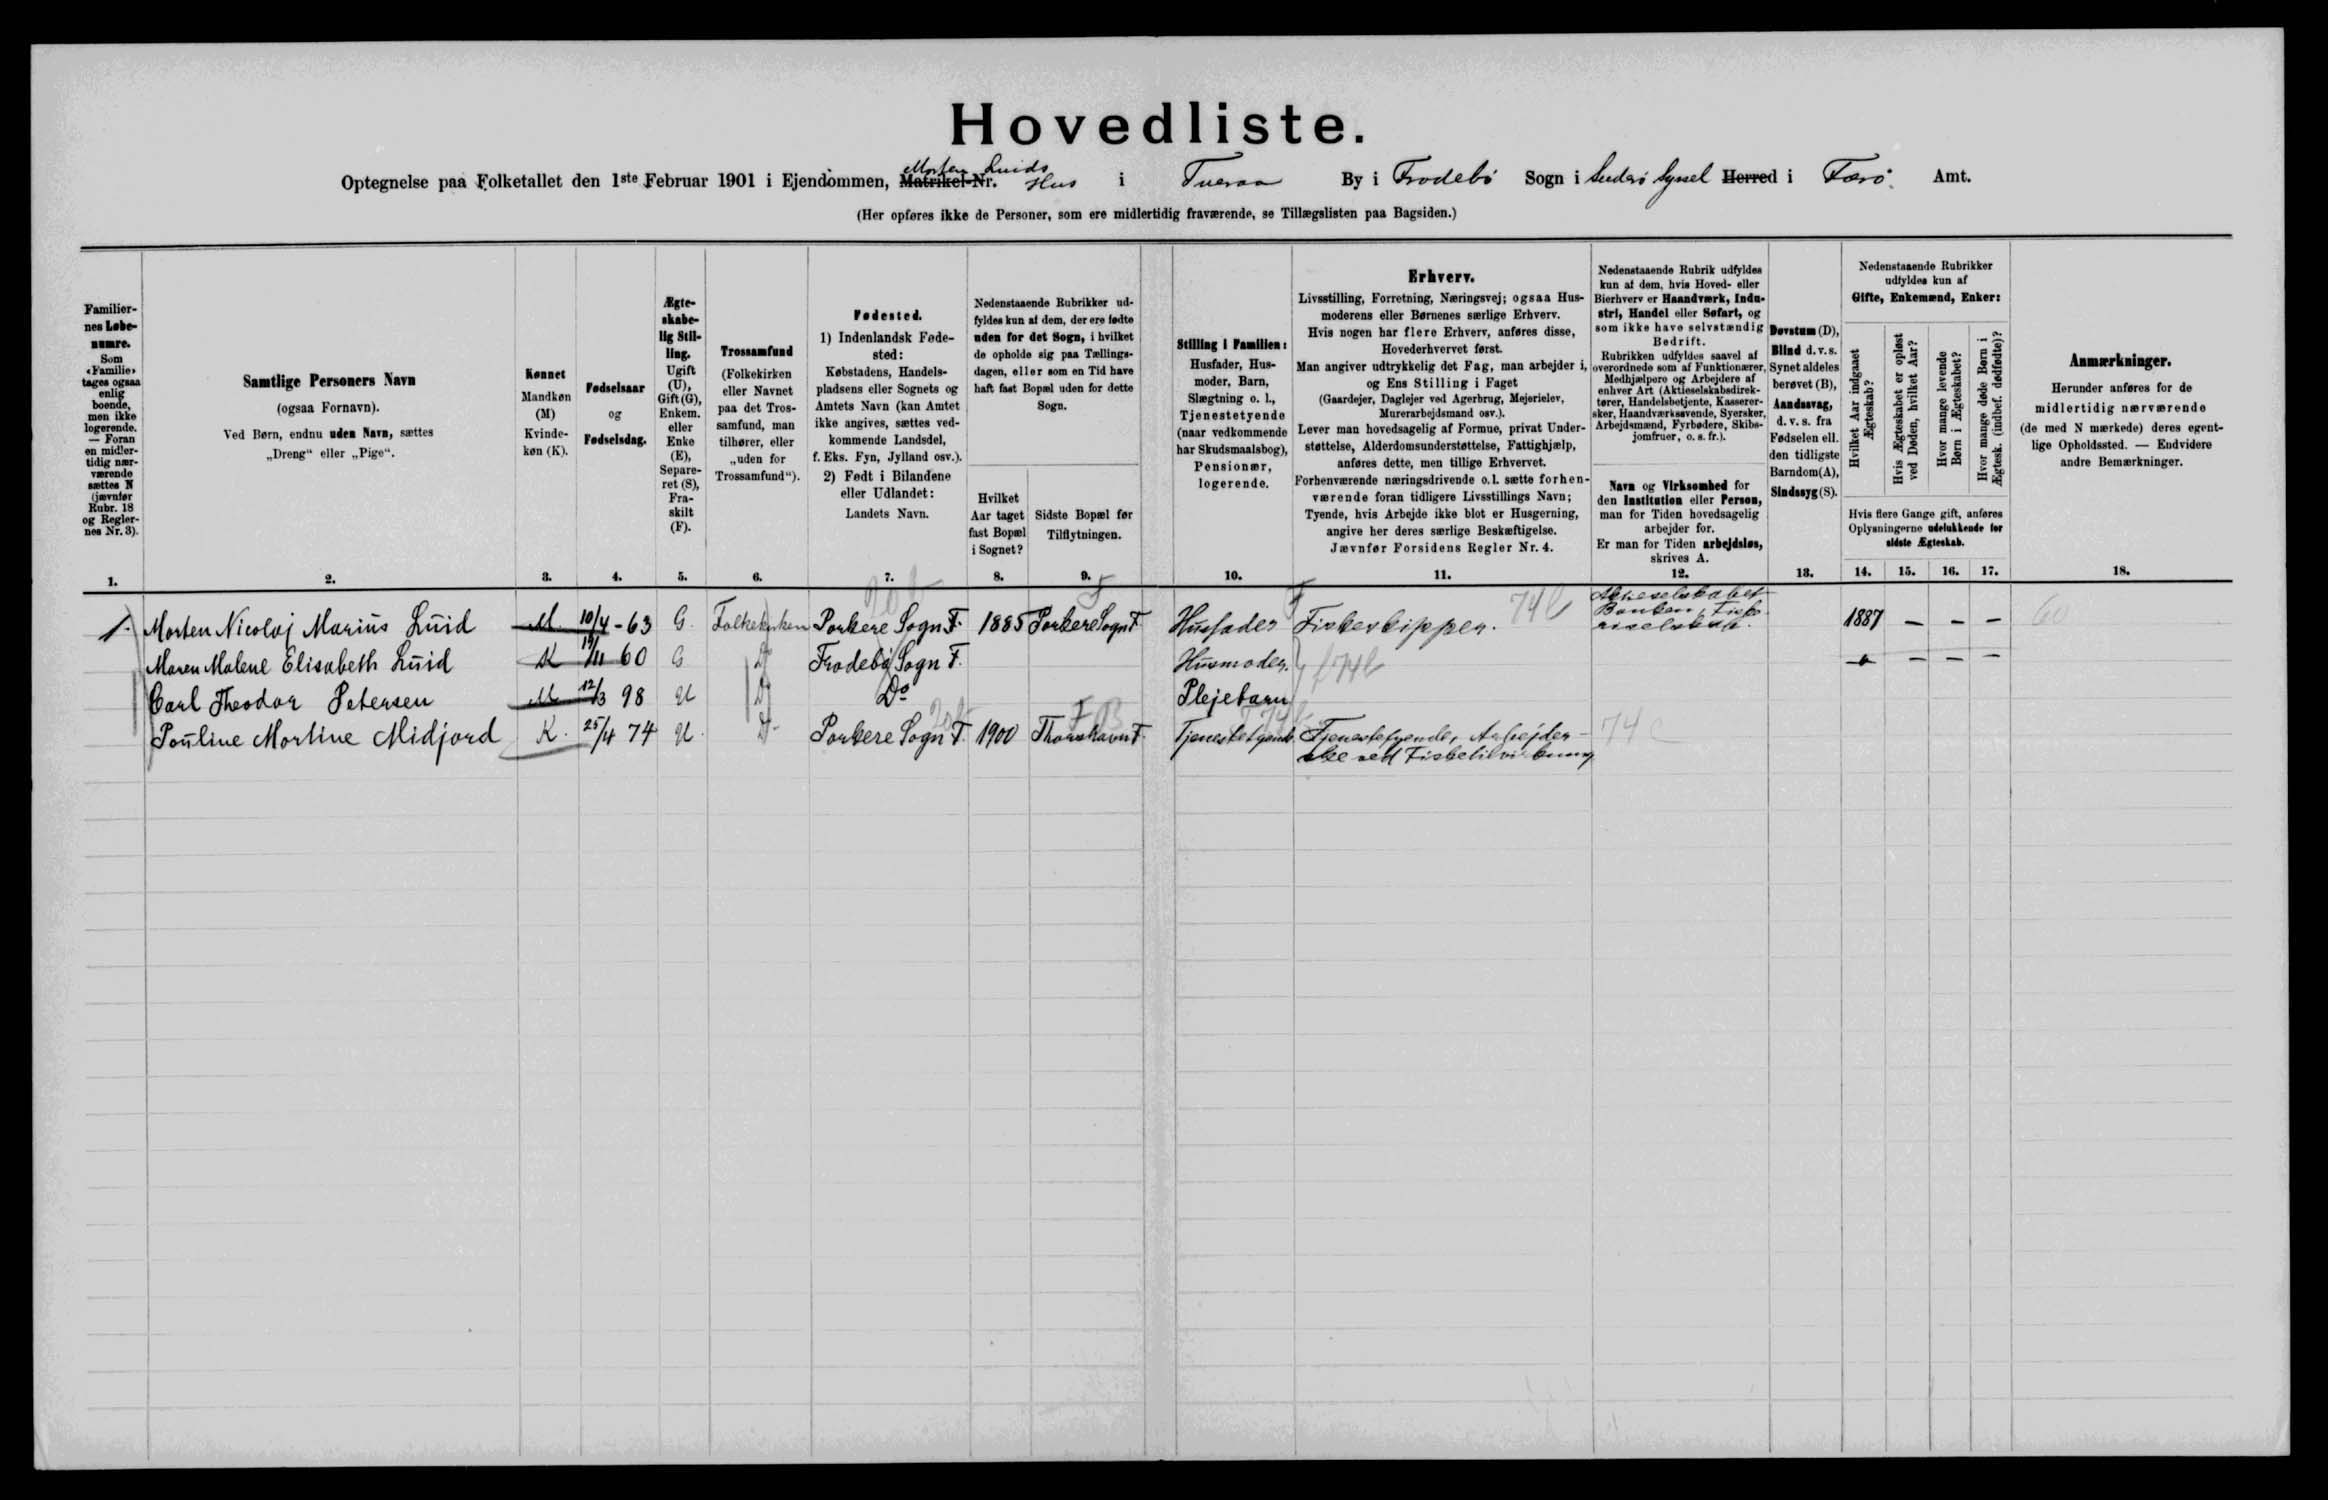 Hovedliste.
Optegnelse paa Folketallet den 1ste Februar 1901 i Ejendommen, Matrikel-Nr. Morten Luids Hus i Tveraa By i Frodebø Sogn i Suderø Syssel Herred i Færø Amt.
(Her opføres ikke de Personer, som ere midlertidig fraværende, se Tillægslisten paa Bagsiden.)
Familier-
nes Løbe-
numre.
Som
«Familie»
tages ogsaa
enlig
boende,
men ikke
logerende.
— Foran
en midler-
tidig nær-
værende
sættes N
(jævnfør
Rubr. 18
og Regler-
nes Nr. 3).
1.
Samtlige Personers Navn
(ogsaa Fornavn).
Ved Børn, endnu uden Navn, sættes
„Dreng“ eller „Pige“.
2.
Kønnet
Mandkøn
(M)
Kvinde-
køn (K).
3.
Fødselsaar
og
Fødselsdag.
4.
Ægte-
skabe-
lig Stil-
ling.
Ugift
(U),
Gift (G),
Enkem.
eller
Enke
(E),
Separe-
ret (S),
Fra-
skilt
(F).
5.
Trossamfund
(Folkekirken
eller Navnet
paa det Tros-
samfund, man
tilhører, eller
„uden for
Trossamfund“).
6.
Fødested.
1) Indenlandsk Føde-
sted:
Købstadens, Handels-
pladsens eller Sognets og
Amtets Navn (kan Amtet
ikke angives, sættes ved-
kommende Landsdel,
f. Eks. Fyn, Jylland osv.).
2) Født i Bilandene
eller Udlandet:
Landets Navn.
7.
Nedenstaaende Rubrikker ud-
fyldes kun af dem, der ere fødte
uden for det Sogn, i hvilket
de opholde sig paa Tællings-
dagen, eller som en Tid have
haft fast Bopæl uden for dette
Sogn.
Hvilket
Aar taget
fast Bopæl
i Sognet?
8.
Sidste Bopæl før
Tilflytningen.
9.
Stilling i Familien:
Husfader, Hus-
moder, Barn,
Slægtning o. l.,
Tjenestetyende
(naar vedkommende
har Skudsmaalsbog),
Pensionær,
logerende.
10.
Erhverv.
Livsstilling, Forretning, Næringsvej; ogsaa Hus-
moderens eller Børnenes særlige Erhverv.
Hvis nogen har flere Erhverv, anføres disse,
Hovederhvervet først.
Man angiver udtrykkelig det Fag, man arbejder i,
og Ens Stilling i Faget
(Gaardejer, Daglejer ved Agerbrug, Mejerielev,
Murerarbejdsmand osv.).
Lever man hovedsagelig af Formue, privat Under-
støttelse, Alderdomsunderstøttelse, Fattighjælp,
anføres dette, men tillige Erhvervet.
Forhenværende næringsdrivende o. l. sætte forhen-
værende foran tidligere Livsstillings Navn;
Tyende, hvis Arbejde ikke blot er Husgerning,
angive her deres særlige Beskæftigelse.
Jævnfør Forsidens Regler Nr. 4.
11.
Nedenstaaende Rubrik udfyldes
kun af dem, hvis Hoved- eller
Bierhverv er Haandværk, Indu-
stri, Handel eller Søfart, og
som ikke have selvstændig
Bedrift.
Rubrikken udfyldes saavel af
overordnede som af Funktionærer,
Medhjælpere og Arbejdere af
enhver Art (Aktieselskabsdirek-
tører, Handelsbetjente, Kasserer-
sker, Haandværkssvende, Syersker,
Arbejdsmænd, Fyrbødere, Skibs-
jomfruer, o. s. fr.).
Navn og Virksomhed for
den Institution eller Person,
man for Tiden hovedsagelig
arbejder for.
Er man for Tiden arbejdsløs,
skrives A.
12.
Døvstum (D),
Blind d. v. s.
Synet aldeles
berøvet (B),
Aandssvag,
d. v. s. fra
Fødselen ell.
den tidligste
Barndom (A),
Sindssyg (S).
13.
Nedenstaaende Rubrikker
udfyldes kun af
Gifte, Enkemænd, Enker:
Hvilket Aar indgaaet
Ægteskab?
Hvis Ægteskabet er opløst
ved Døden, hvilket Aar?
Hvor mange levende
Børn i Ægteskabet?
Hvor mange døde Børn i
Ægtesk. (indbef. dødfødte)?
Hvis flere Gange gift, anføres
Oplysningerne udelukkende for
sidste Ægteskab.
14. 15. 16. 17.
Anmærkninger.
Herunder anføres for de
midlertidig nærværende
(de med N mærkede) deres egent-
lige Opholdssted. — Endvidere
andre Bemærkninger.
18.
1. Morten Nicolaj Marius Luid M. 10/4 - 63 G. Folkekirken Porkere Sogn F. 1885 Porkere Sogn F Husfader Fiskeskipper. 74b Aktieselskabet 1887 — — — 60
Maren Malene Elisabeth Luid K 19/11 60 G Do Frodebø Sogn F. Husmoder. f 74b — — —
Carl Theodor Petersen M 12/3 98 U Do Do Plejebarn
Pouline Mortine Midjord K. 25/4 74 U. Do Porkere Sogn F. 1900 Thorshavn F. Tjenestetyende. Tjenestetyende, Arbejder-
ske ved Fisketilvirkning 74c